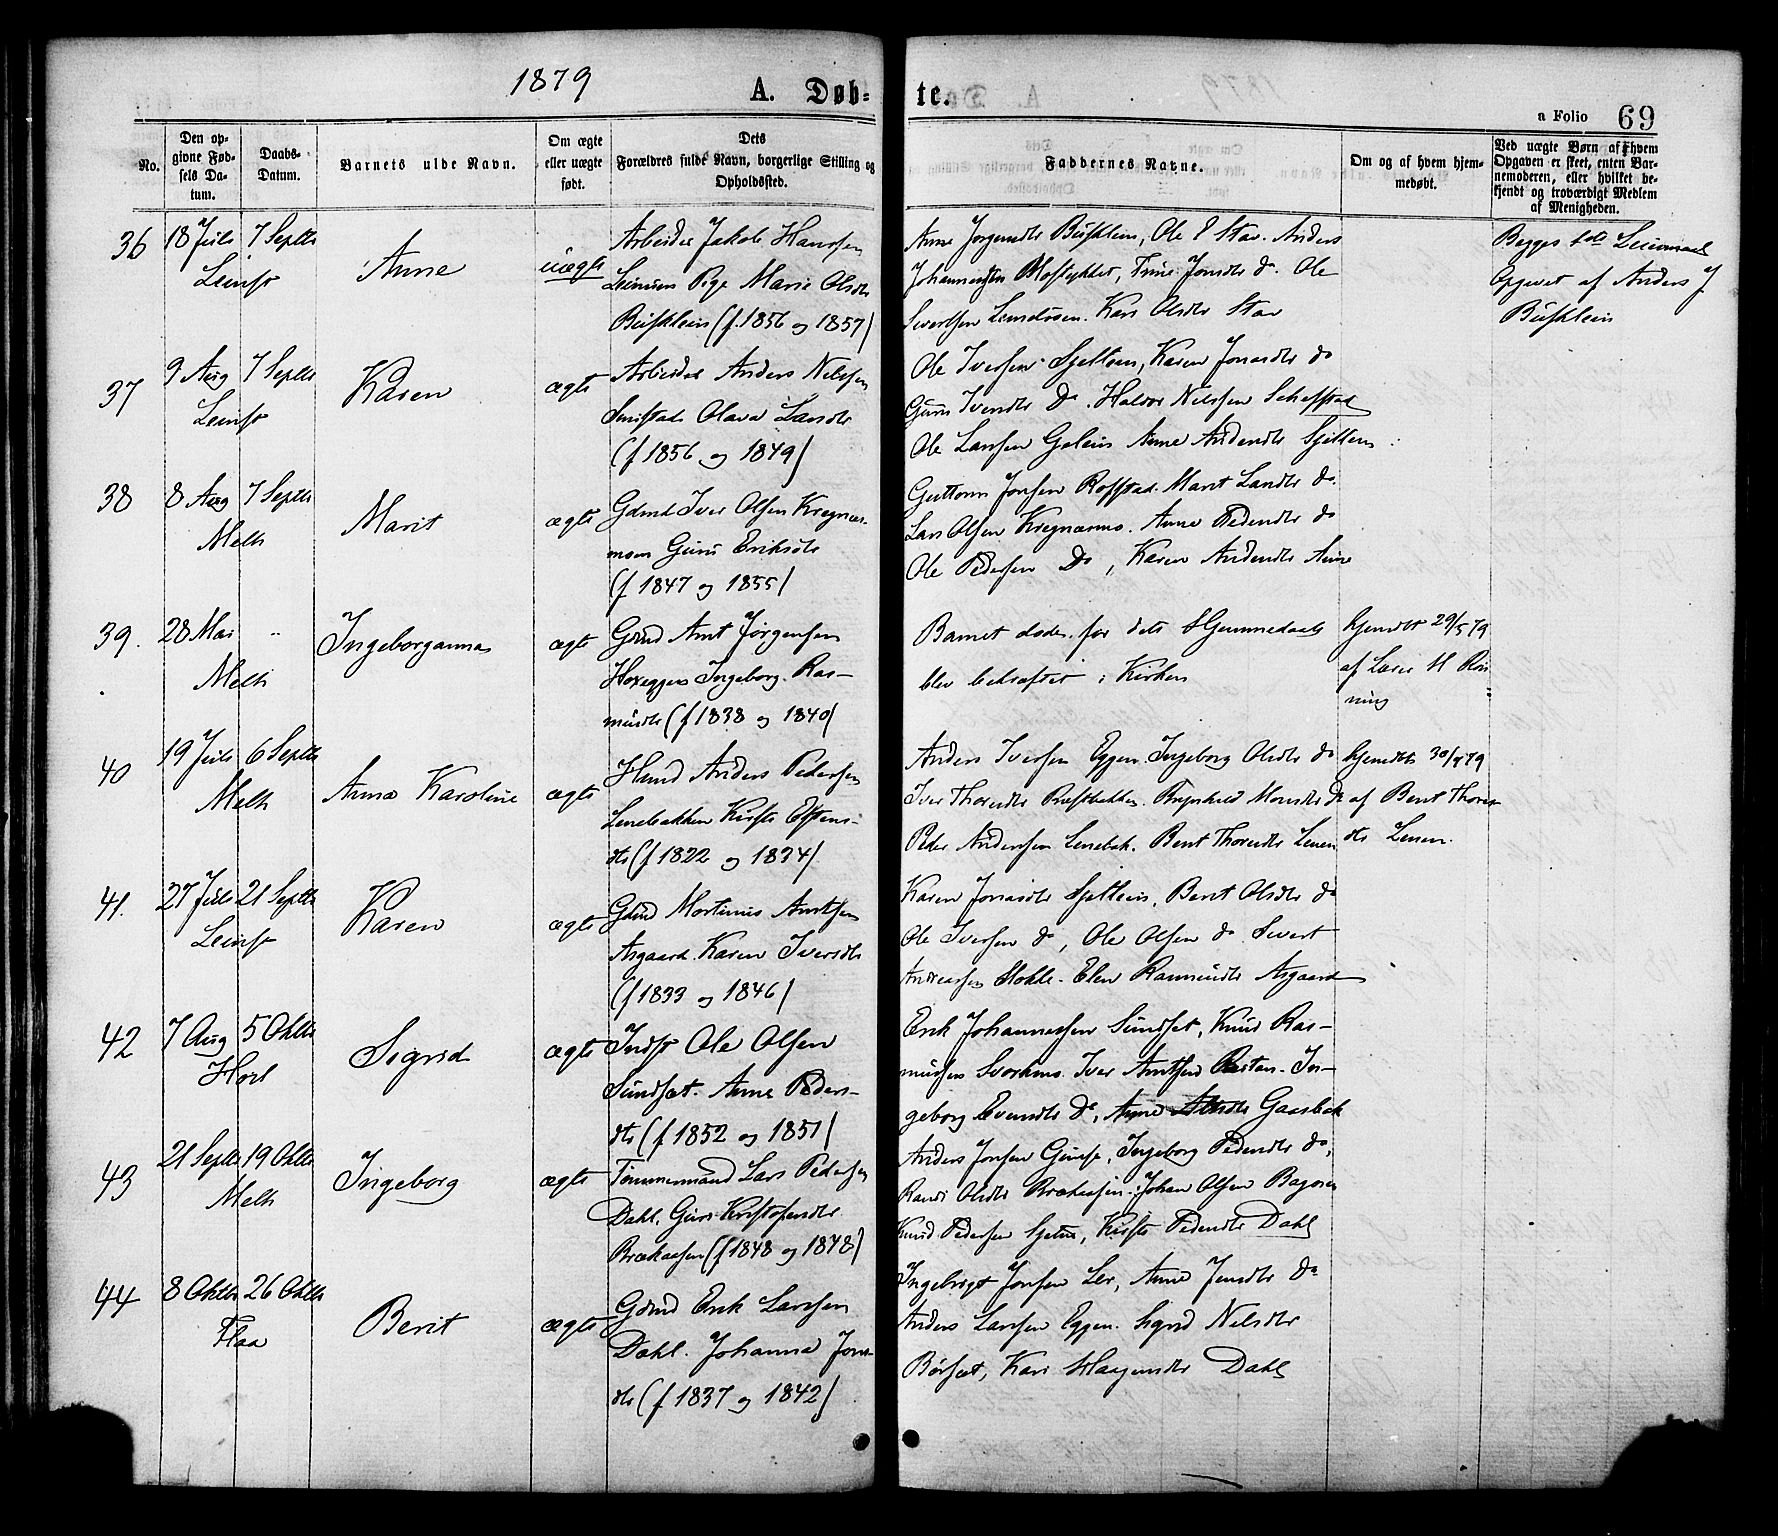 1879
A. Døb-
te.
a Folio 69
No.
Den op-
givne Fød-
sels Da-
tum.
Daabs-
Datum.
Barnets fulde Navn.
Om ægte
eller uægte
født.
Dets
Forældres fulde Navn, borgerlige Stilling og
Opholdssted.
Faddernes Navne.
Om og af hvem hjem-
medøbt.
Ved uægte Børn af hvem
Opgaven er skeet, enten Bar-
nemoderen, eller hvilket be-
kjendt og troværdigt Medlem
af Menigheden.
36 18 Juli 7 Septbr
Leinst
Anne
uægte
Arbeider Jakob Hansen
Leinum Pige Marie Olsdtr
Busklein (f. 1856 og 1857)
Anne Jørgensdtr Busklein, Ole E Stav. Anders
Johannessen Mostykket, Trine Jonsdtr do. Ole
Sivertsen Lundosen. Kari Olsdtr Stav
Begges 1ste Leiermaal
Opgivet af Anders J
Busklein
37 9 Aug 7 Septbr
Leinst
Karen
ægte
Arbeider Anders Nilssen
Smistad Olava Larsdtr
(f 1856 og 1849)
Ole Iversen Sjetlein, Karen Jonasdtr do
Guru Iversdtr Do. Haldor Nilssen
Ole Larssen Anne Andersdtr Sjetlein
38 8 Aug 7 Septbr
Melh
Marit
ægte
Gdmd Iver Olsen Kregnæs-
moen Guru Eriksdtr
(f 1847 og 1855)
Guttorm Jonsen Rofstad. Marit Larsdtr do.
Lars Olsen Kregnæsmo. Anne Pedersdtr do
Ole Pedersen Do, Karen Andersdtr
39. 28 Mai "
Melh
Ingeborganna
ægte
Gdmd Arnt Jørgensen
Hoxeggen Ingeborg Ras-
musdtr (f 1838 og 1840)
Barnet døde. før dets Hjemmedaab
blev bekræftet i Kirken
hjemdbt 29/5 79
af Lærer H Røn
ning
40 19 Juli 6 Septbr
Melh
Anna Karoline
ægte
Husmd Anders Pedersen
Lenebakken Kirsti Estens-
dtr (f 1822 og 1834)
Anders Iversen Eggen. Ingeborg Olsdtr do
Iver Thoresdtr Monsdtr do
Peder Anderssen Lenebak. Berit Thoresdtr Lenen
hjemdbt 30/ 79
af Berit Thores
dtr Lenen.
41. 27 Juli 21 Septbr
Leinst
Karen
ægte
Gdmd Mortinus Arntsen
Asgaard. Karen Iversdtr
(f 1833 og 1846)
Karen Jonasdtr Sjetlein, Berit Olsdtr do
Ole Iversen do, Ole Olsen do Sivert
Andreassen Stokke. Elen Rasmusdtr Asgaard
42 7 Aug 5 Oktbr
Horl
Sigrid
ægte
Indst Ole Olsen
Sundset. Anne Peders-
dtr (f 1852 og 1851)
Erik Johannessen Sundset, Knud Ras-
mussen Svorkmo. Iver Arntsen In-
geborg Evensdtr do, Anne Gaasbak
43 21 Septbr 19 Oktbr
Melh
Ingeborg
ægte
Tømmermand Lars Pedersen
Dahl. Guru Kristofersdtr
Brækaasen (f 1848 og 1848)
Anders Jonsen Gimse, Ingeborg Pedersdtr do,
Randi Olsdtr Brækaasen. Johan Olsen
Knud Pedersen Kirsti Pedersdtr Dahl
44 8 Oktbr 26 Oktbr
Flaa
Berit
ægte
Gdmd Erik Larssen
Dahl. Johanna Jons-
dtr (f 1837 og 1842)
Ingebrigt Jonsen Ler, Anne Jensdtr do
Anders Larssen Eggen. Sigrid Nilsdtr
Børset, Kari Haagensdtr Dahl